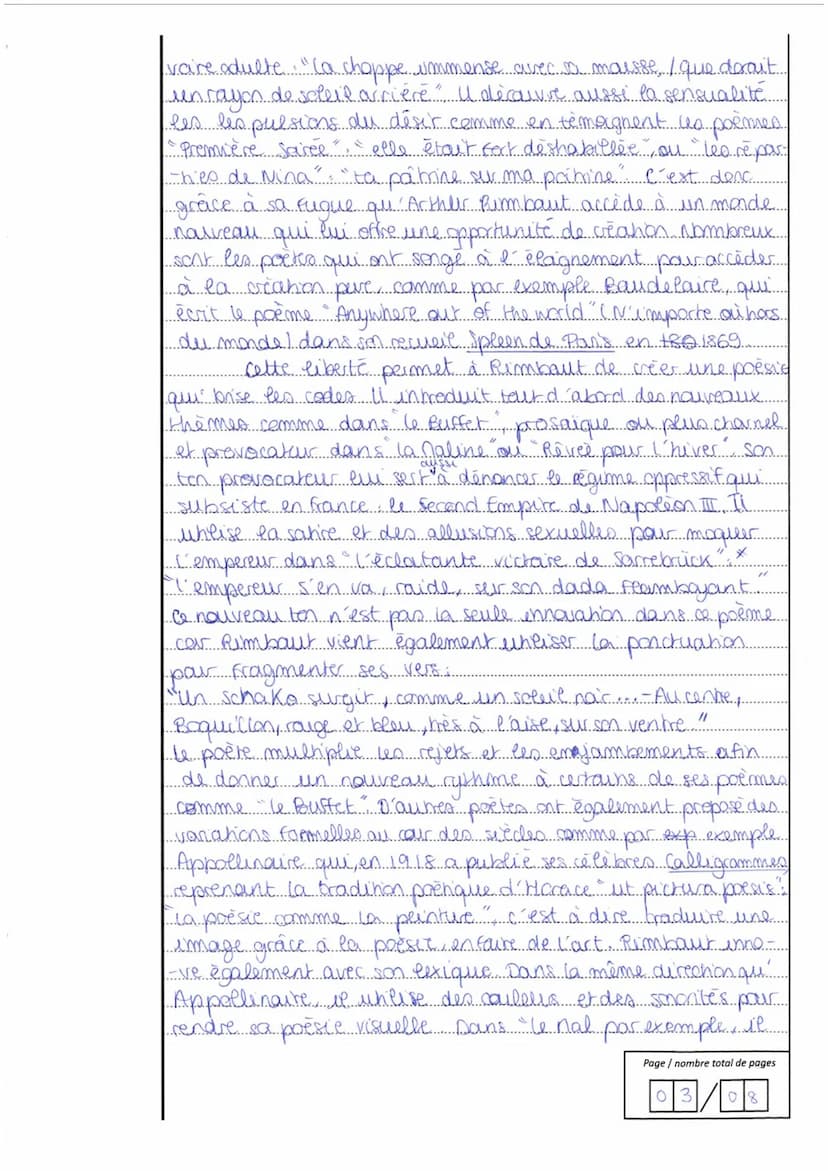 voire adulte : "la choppe immense avec sa mousse, / que dorait
un rayon de soleil arriéré". Il découvre aussi la sensualité
les les pulsions du désir comme en témoignent les poèmes
"Première Soirée" : "elle était fort déshabillée", ou "les répar-
-ties de Nina" : "ta poitrine sur ma poitrine". C'est donc
grâce à sa fugue qu'Arthur Rimbaut accède à un monde
nouveau qui lui offre une opportunité de création. Nombreux
sont les poètes qui ont songé à l'éloignement pour accéder
à la création pure, comme par exemple Baudelaire, qui
écrit le poème "Anywhere out of the world" (N'importe où hors
du monde) dans son recueil Spleen de Paris en 1869.
Cette liberté permet à Rimbaut de créer une poésie
qui brise les codes. Il introduit tout d'abord des nouveaux
thèmes comme dans "le Buffet", prosaïque ou plus charnel
et provocateur dans "la Maline" ou "Rêvée pour l'hiver". Son
ton provocateur lui sert aussi à dénoncer le régime oppressif qui
subsiste en France : le Second Empire de Napoléon III. Il
utilise la satire et des allusions sexuelles pour moquer
l'empereur dans "l'éclatante victoire de Sarrebrück" : *
"l'empereur s'en va, raide, sur son dada flamboyant."
Ce nouveau ton n'est pas la seule innovation dans ce poème
car Rimbaut vient également utiliser la ponctuation
pour fragmenter ses vers :
"Un schako surgit, comme un soleil noir... - Au centre,
Boquillon, rouge et bleu, très à l'aise, sur son ventre."
Le poète multiplie les rejets et les enjambements afin
de donner un nouveau rythme à certains de ses poèmes
comme "le Buffet". D'autres poètes ont également proposé des
variations formelles au cour des siècles comme par exp exemple
Appollinaire qui, en 1918 a publié ses célèbres Calligrammes,
reprenant la tradition poétique d'Horace "ut pictura poesis" :
"la poésie comme la peinture", c'est à dire traduire une
image grâce à la poésie, en faire de l'art. Rimbaut inno-
-ve également avec son lexique. Dans la même direction qu'
Appollinaire, il utilise des couleurs et des sonorités pour
rendre sa poésie visuelle. Dans "le Mal par exemple, il
Page / nombre total de pages
03/08